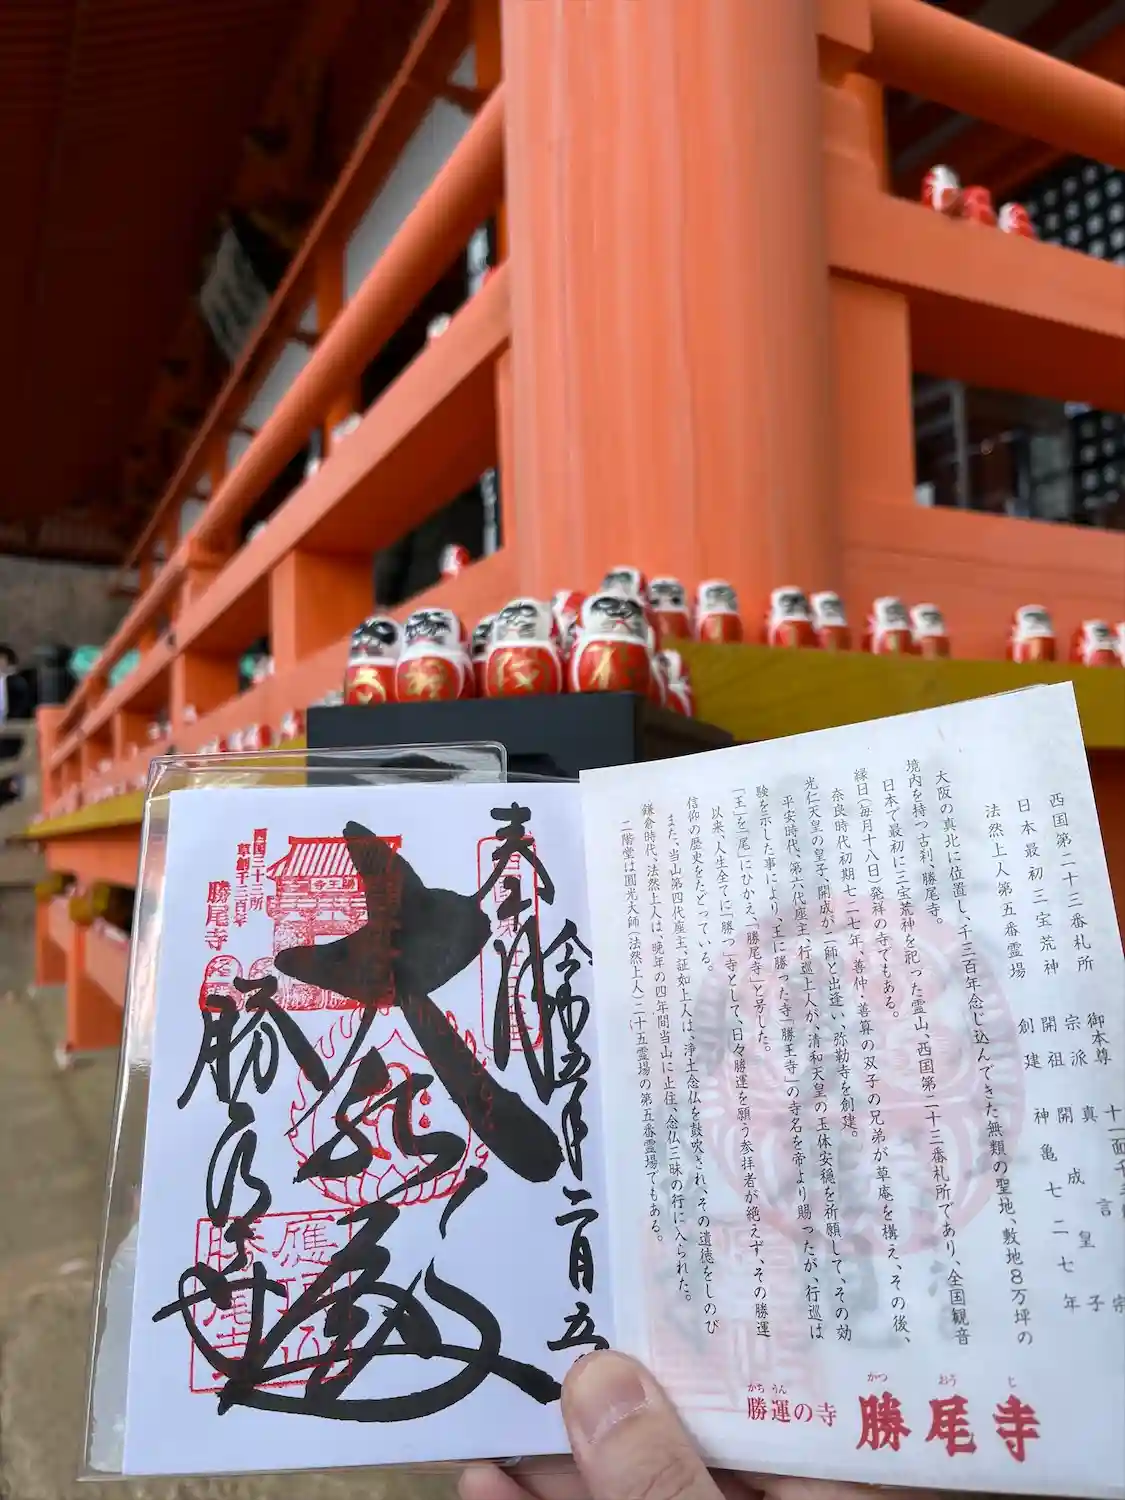 西国第二十三番札所
日本最初三宝荒神
法然上人第五番霊場
御本尊 十一面千手
宗派 真言宗
開祖 開成皇子
創建 神亀七二七年
大阪の真北に位置し、千三百年念じ込んできた無類の聖地、敷地8万坪の
境内を持つ古刹、勝尾寺。
日本で最初に三宝荒神を祀った霊山、西国第二十三番札所であり、全国観音
縁日(毎月十八日)発祥の寺でもある。
奈良時代初期七二七年、善仲・善算の双子の兄弟が草庵を構え、その後、
光仁天皇の皇子、開成が二師と出逢い、弥勒寺を創建。
平安時代、第六代座主、行巡上人が、清和天皇の玉体安穏を祈願して、その効
験を示した事により、王に勝った寺「勝王寺」の寺名を帝より賜ったが、行巡は
「王」を「尾」にひかえ、「勝尾寺」と号した。
以来、人生全てに「勝つ」寺として、日々勝運を願う参拝者が絶えず、その勝運
信仰の歴史をたどっている。
また、当山第四代座主、証如上人は、浄土念仏を鼓吹され、その遺徳をしのび
鎌倉時代、法然上人は、晩年の四年間当山に止住、念仏三昧の行に入られた。
二階堂は圓光大師(法然上人)二十五霊場の第五番霊場でもある。
かち うん
勝運の寺
かつ おう じ
勝尾寺
奉拝
二月五
大悲殿
勝尾寺
西国二十三所
草創千三百年
勝尾寺
勝王寺
應頂山
勝尾寺